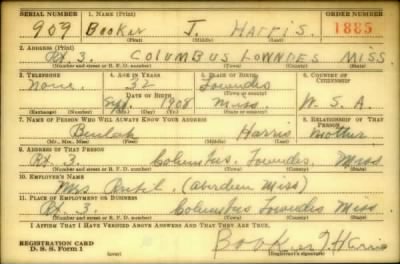 SERIAL NUMBER 1. NAME (Print) ORDER NUMBER
909 Booker T. Harris 1885
2. ADDRESS (Print)
Rt. 3. COLUMBUS LOWNDES MISS.
(Number and street or R. F. D. number) (Town) (County) (State)
3. TELEPHONE 4. AGE IN YEARS 5. PLACE OF BIRTH 6. COUNTRY OF CITIZENSHIP
None. 32 Lowndes
DATE OF BIRTH (Town or county)
Sept. 1908 Miss. U. S. A.
(Exchange) (Number) (Mo.) (Day) (Yr.) (State or country)
7. NAME OF PERSON WHO WILL ALWAYS KNOW YOUR ADDRESS 8. RELATIONSHIP OF THAT PERSON
Beulah Harris Mother
(Mr., Mrs., Miss) (First) (Middle) (Last)
9. ADDRESS OF THAT PERSON
Rt. 3. Columbus. Lowndes. Miss
(Number and street or R. F. D. number) (Town) (County) (State)
10. EMPLOYER'S NAME
Mrs (Aberdeen Miss)
11. PLACE OF EMPLOYMENT OR BUSINESS
Rt. 3 Columbus Lowndes Miss.
(Number and street or R. F. D. number) (Town) (County) (State)
I AFFIRM THAT I HAVE VERIFIED ABOVE ANSWERS AND THAT THEY ARE TRUE.
REGISTRATION CARD
D. S. S. Form 1 (over) Booker T Harris
(Registrant's signature)